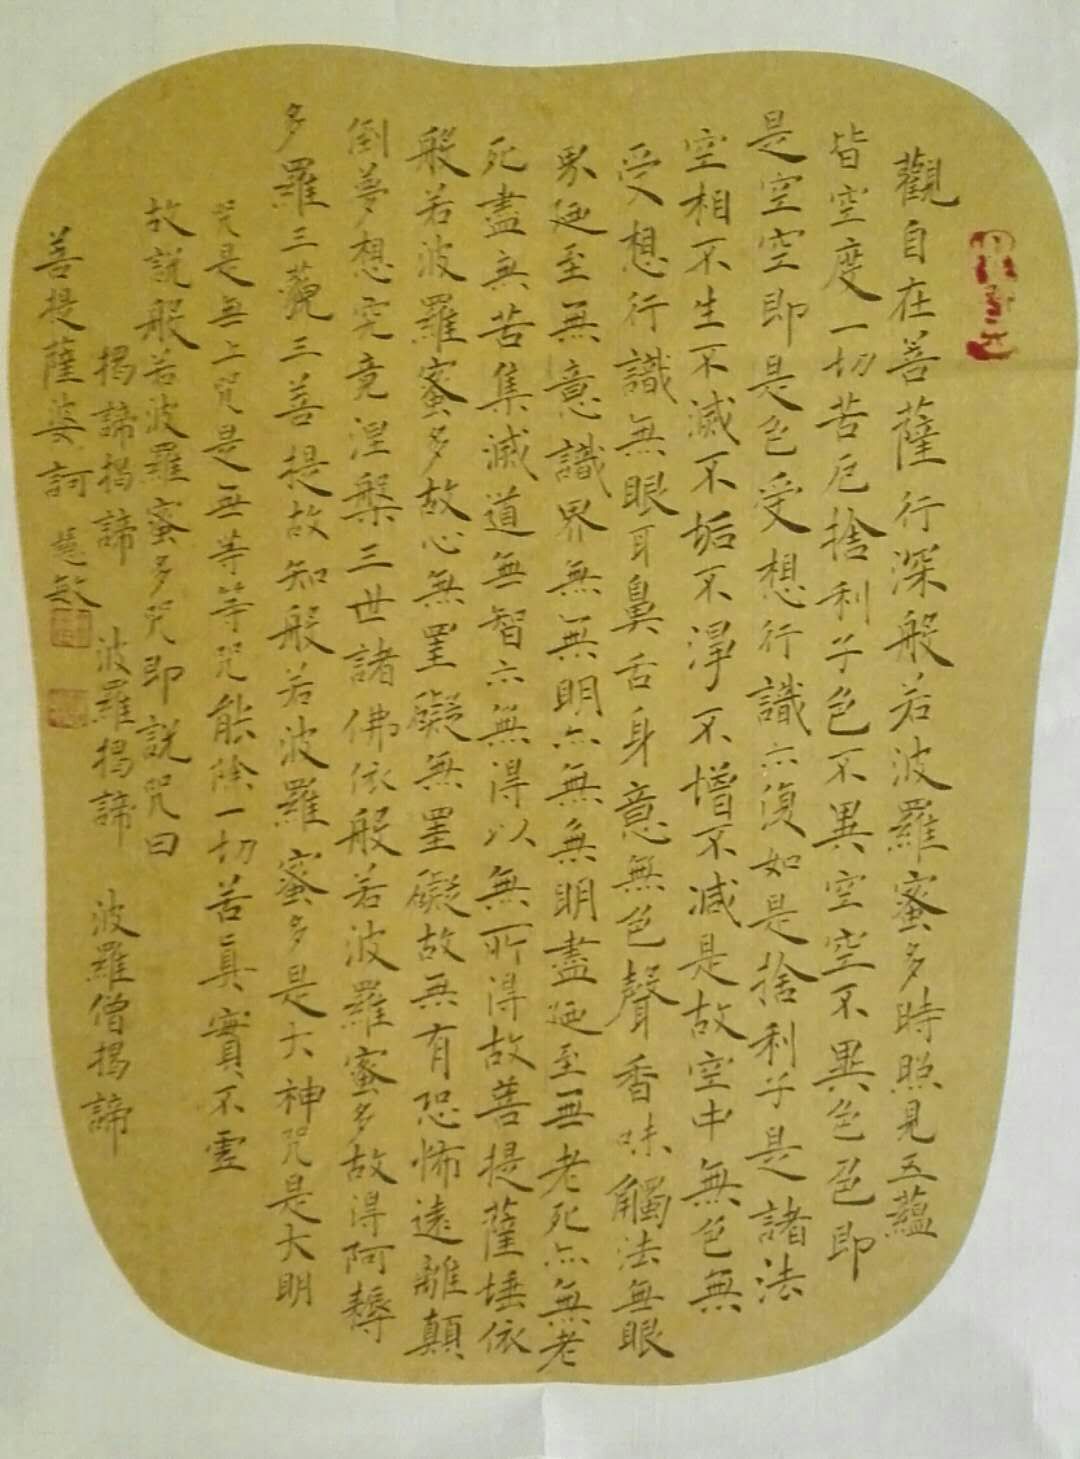 觀自在菩薩行深般若波羅蜜多時照見五蘊
皆空度一切苦厄捨利子色不異空空不異色色即
是空空即是色受想行識亦復如是捨利子是諸法
空相不生不滅不垢不淨不增不減是故空中無色無
受想行識無眼耳鼻舌身意無色聲香味觸法無眼
界廼至無意識界無無明亦無無明盡廼至無老死亦無老
死盡無苦集滅道無智亦無得以無所得故菩提薩埵依
般若波羅蜜多故心無罣礙無罣礙故無有恐怖遠離顛
倒夢想究竟涅槃三世諸佛依般若波羅蜜多故得阿耨
多羅三藐三菩提故知般若波羅蜜多是大神咒是大明
咒是無上咒是無等等咒能除一切苦真實不虛
故説般若波羅蜜多咒即説咒曰
揭諦揭諦 波羅揭諦 波羅僧揭諦
菩提薩婆訶